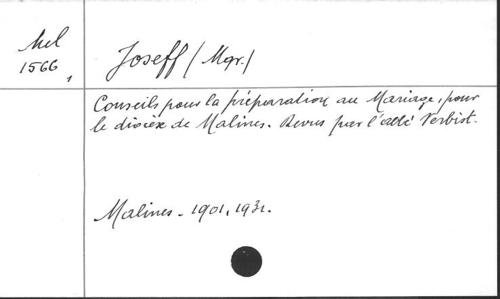 Mel
1566,
Joseff (Mgr.)
Conseils pour la préparation au Mariage, pour
le diocèse de Malines. Revus par l'abbé Verbist.
Malines - 1901, 1931.